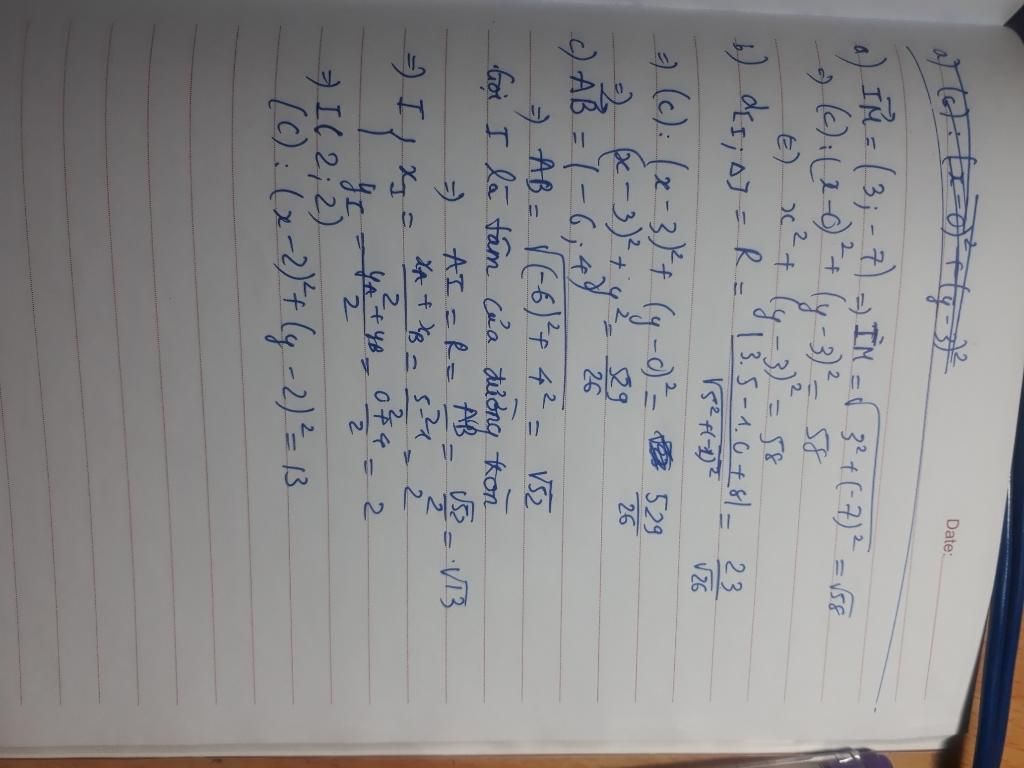 Date:
a) (C): (x-0)² + (y-3)²
a) IM⃗ = (3; -7) => IM = √(3² + (-7)²) = √58
=> (C): (x-0)² + (y-3)² = 58
(=) x² + (y-3)² = 58
b) d(I, Δ) = R = |3.5 - 1.0 + 8| / √(5² + (-1)²) = 23/√26
=> (C): (x-3)² + (y-0)² = 529/26
=> (x-3)² + y² = 529/26
c) AB⃗ = (-6, 4)
=> AB = √((-6)² + 4²) = √52
Gọi I là tâm của đường tròn
=> AI = R = AB/2 = √52/2 = √13
=> I { x_I = (x_A + x_B)/2 = (5-1)/2 = 2
y_I = (y_A + y_B)/2 = (0+4)/2 = 2
=> I(2; 2)
(C): (x-2)² + (y-2)² = 13